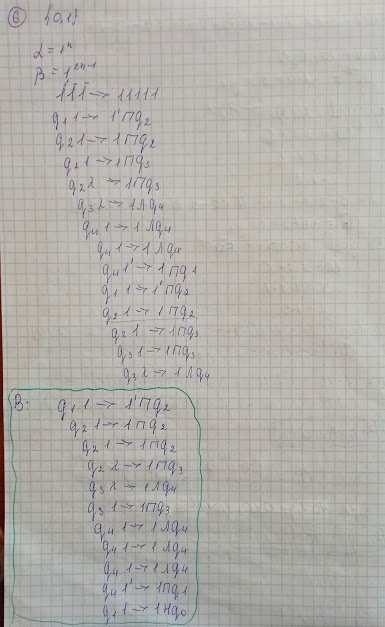 6 {0,1}
α = 1ⁿ
β = 1²ⁿ⁻¹
111 → 11111
q₁ 1 → 1' П q₂
q₂ 1 → 1 П q₂
q₂ 1 → 1 П q₃
q₂ λ → 1 П q₃
q₃ λ → 1 Л q₄
q₄ 1 → 1 Л q₄
q₄ 1 → 1 Л q₄
q₄ 1' → 1 П q₁
q₁ 1 → 1' П q₂
q₂ 1 → 1 П q₂
q₂ 1 → 1 П q₃
q₃ 1 → 1 П q₃
q₃ λ → 1 Л q₄
В: q₁ 1 → 1' П q₂
q₂ 1 → 1 П q₂
q₂ 1 → 1 П q₂
q₂ λ → 1 П q₃
q₃ λ → 1 Л q₄
q₃ 1 → 1 П q₃
q₄ 1 → 1 Л q₄
q₄ 1 → 1 Л q₄
q₄ 1 → 1 Л q₄
q₄ 1' → 1 П q₁
q₁ 1 → 1 Н q₀